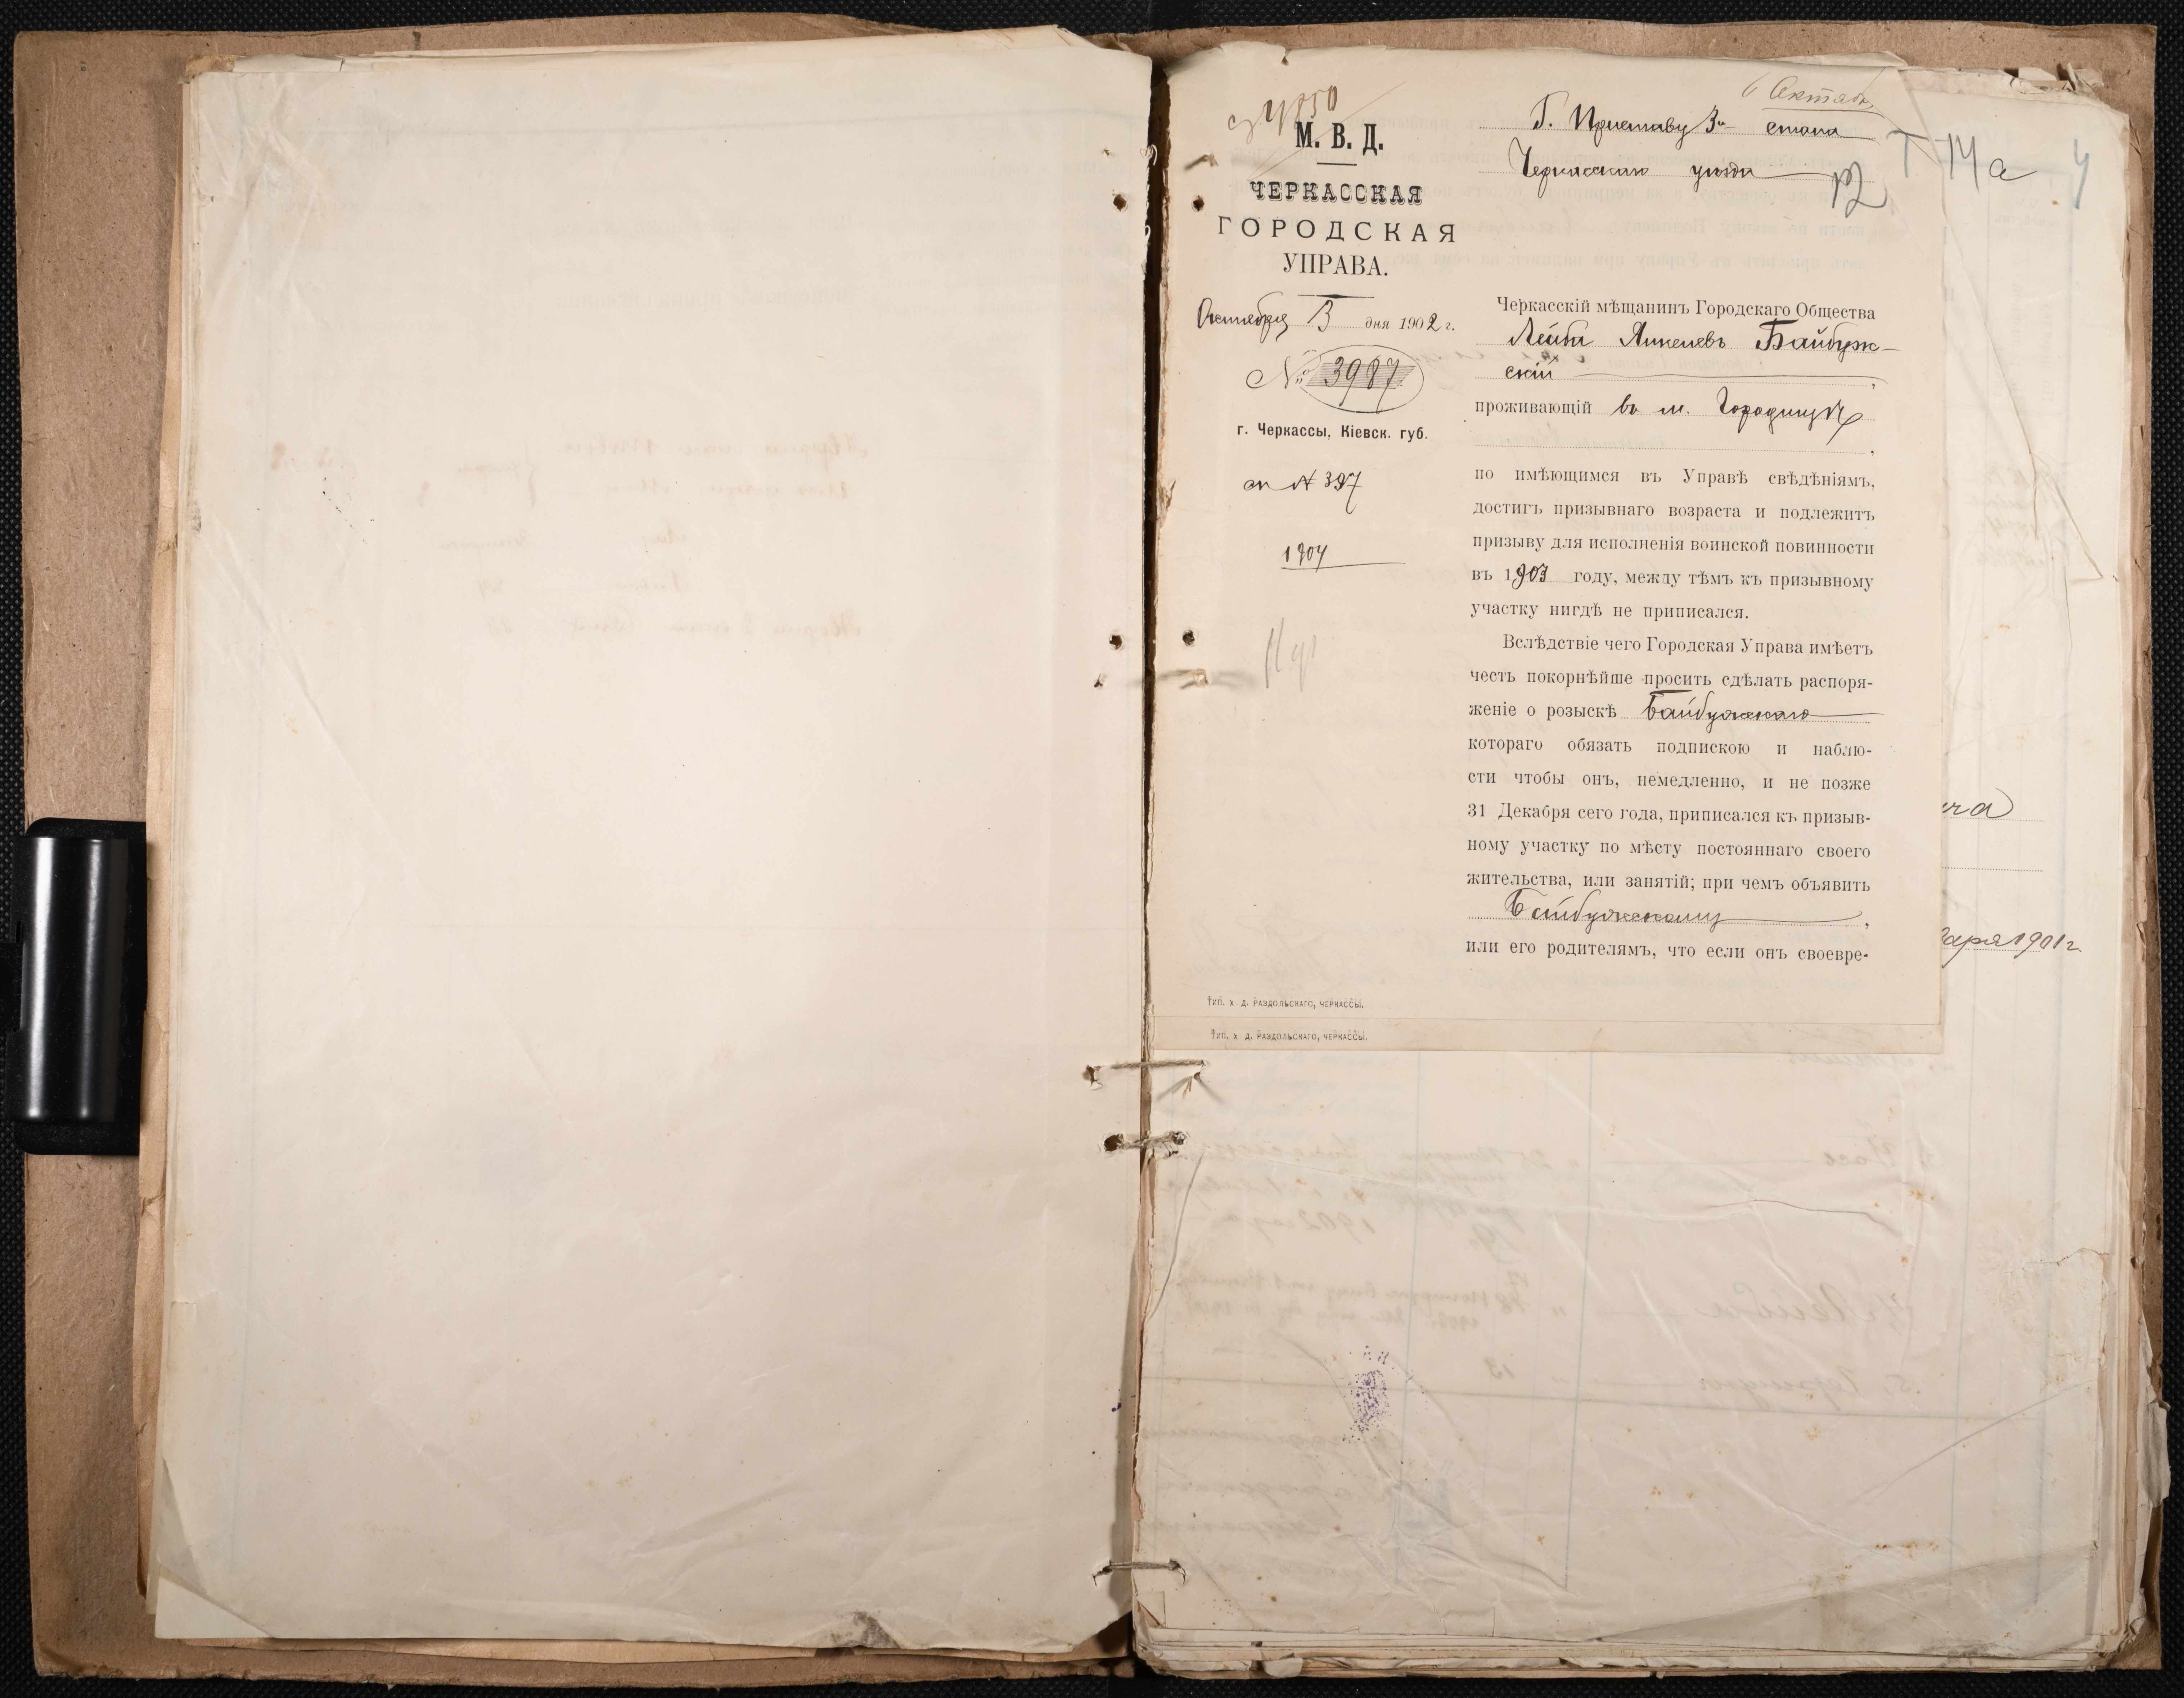 6 Октяб.
4850
М. В. Д.
ЧЕРКАССКАЯ
ГОРОДСКАЯ
УПРАВА.
Октября 3 дня 1902 г.
№ 3987
г. Черкассы, Кіевск. губ.
№ 397
1904
Г. Приставу 3го стана
Черкасскаго уѣзда
14а
4
Черкасскій мѣщанинъ Городскаго Общества
Лейба Янкелевъ Байбуж-
скій ,
проживающій въ м. Городищѣ
,
по имѣющимся въ Управѣ свѣдѣніямъ,
достигъ призывнаго возраста и подлежитъ
призыву для исполненія воинской повинности
въ 1903 году, между тѣмъ къ призывному
участку нигдѣ не приписался.
Вслѣдствіе чего Городская Управа имѣетъ
честь покорнѣйше просить сдѣлать распоря-
женіе о розыскѣ Байбужскаго
котораго обязать подпискою и наблю-
сти чтобы онъ, немедленно, и не позже
31 Декабря сего года, приписался къ призыв-
ному участку по мѣсту постояннаго своего
жительства, или занятій; при чемъ объявить
Байбужскому ,
или его родителямъ, что если онъ своевре-
Тип. Х. Д. Раздольскаго, Черкассы.
Тип. Х. Д. Раздольскаго, Черкассы.
ча
варя 1901 г.